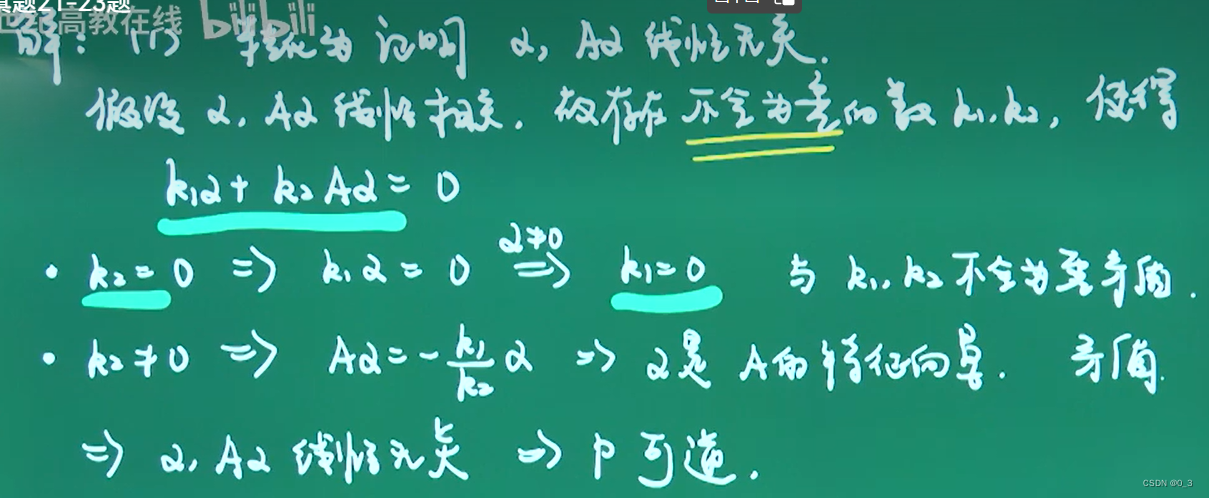 真题21-23题
高教在线 bilibili
解: (1) 转化为证明 α, Aα 线性无关.
假设 α, Aα 线性相关. 故存在不全为零的数 k₁, k₂, 使得
k₁α + k₂Aα = 0
· k₂ = 0 ⇒ k₁α = 0 α≠0 ⇒ k₁ = 0 与 k₁, k₂ 不全为零矛盾.
· k₂ ≠ 0 ⇒ Aα = -k₁/k₂ α ⇒ α是 A的特征向量. 矛盾.
⇒ α, Aα 线性无关 ⇒ P可逆.
CSDN @0_3